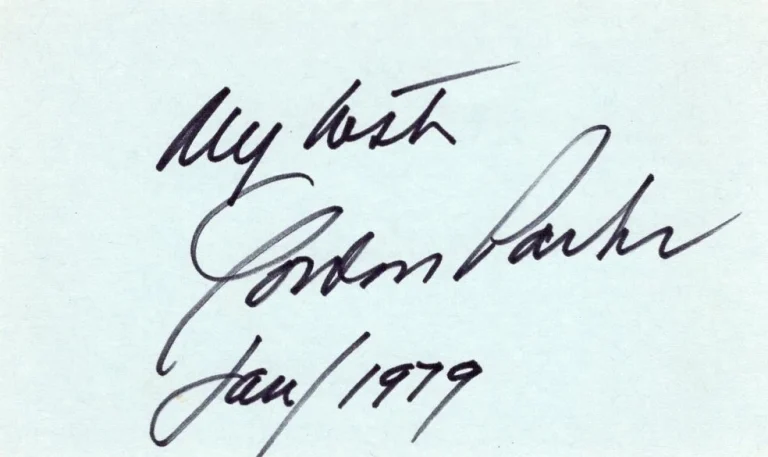 My best
Gordon Parks
Jan/1979